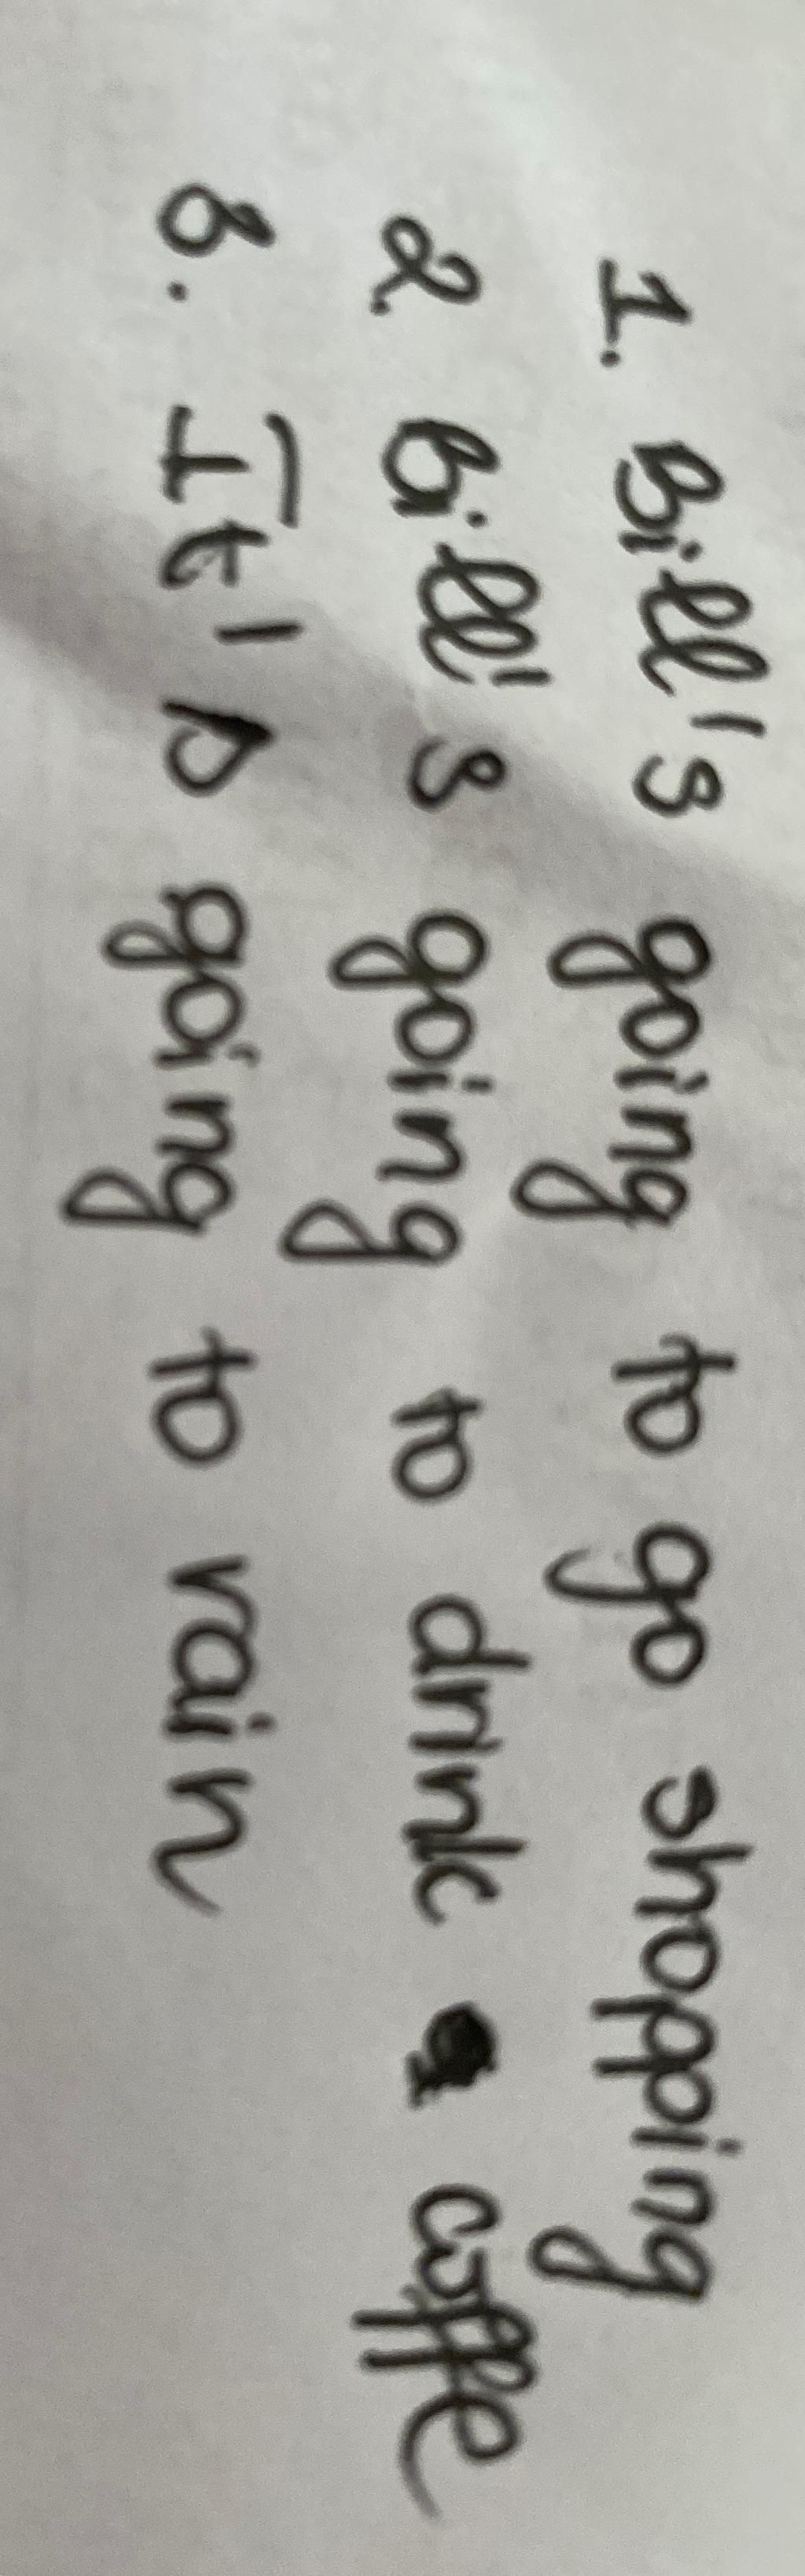 1. Bill's going to go shopping
2. Bill's going to drink a coffe
3. It's going to rain